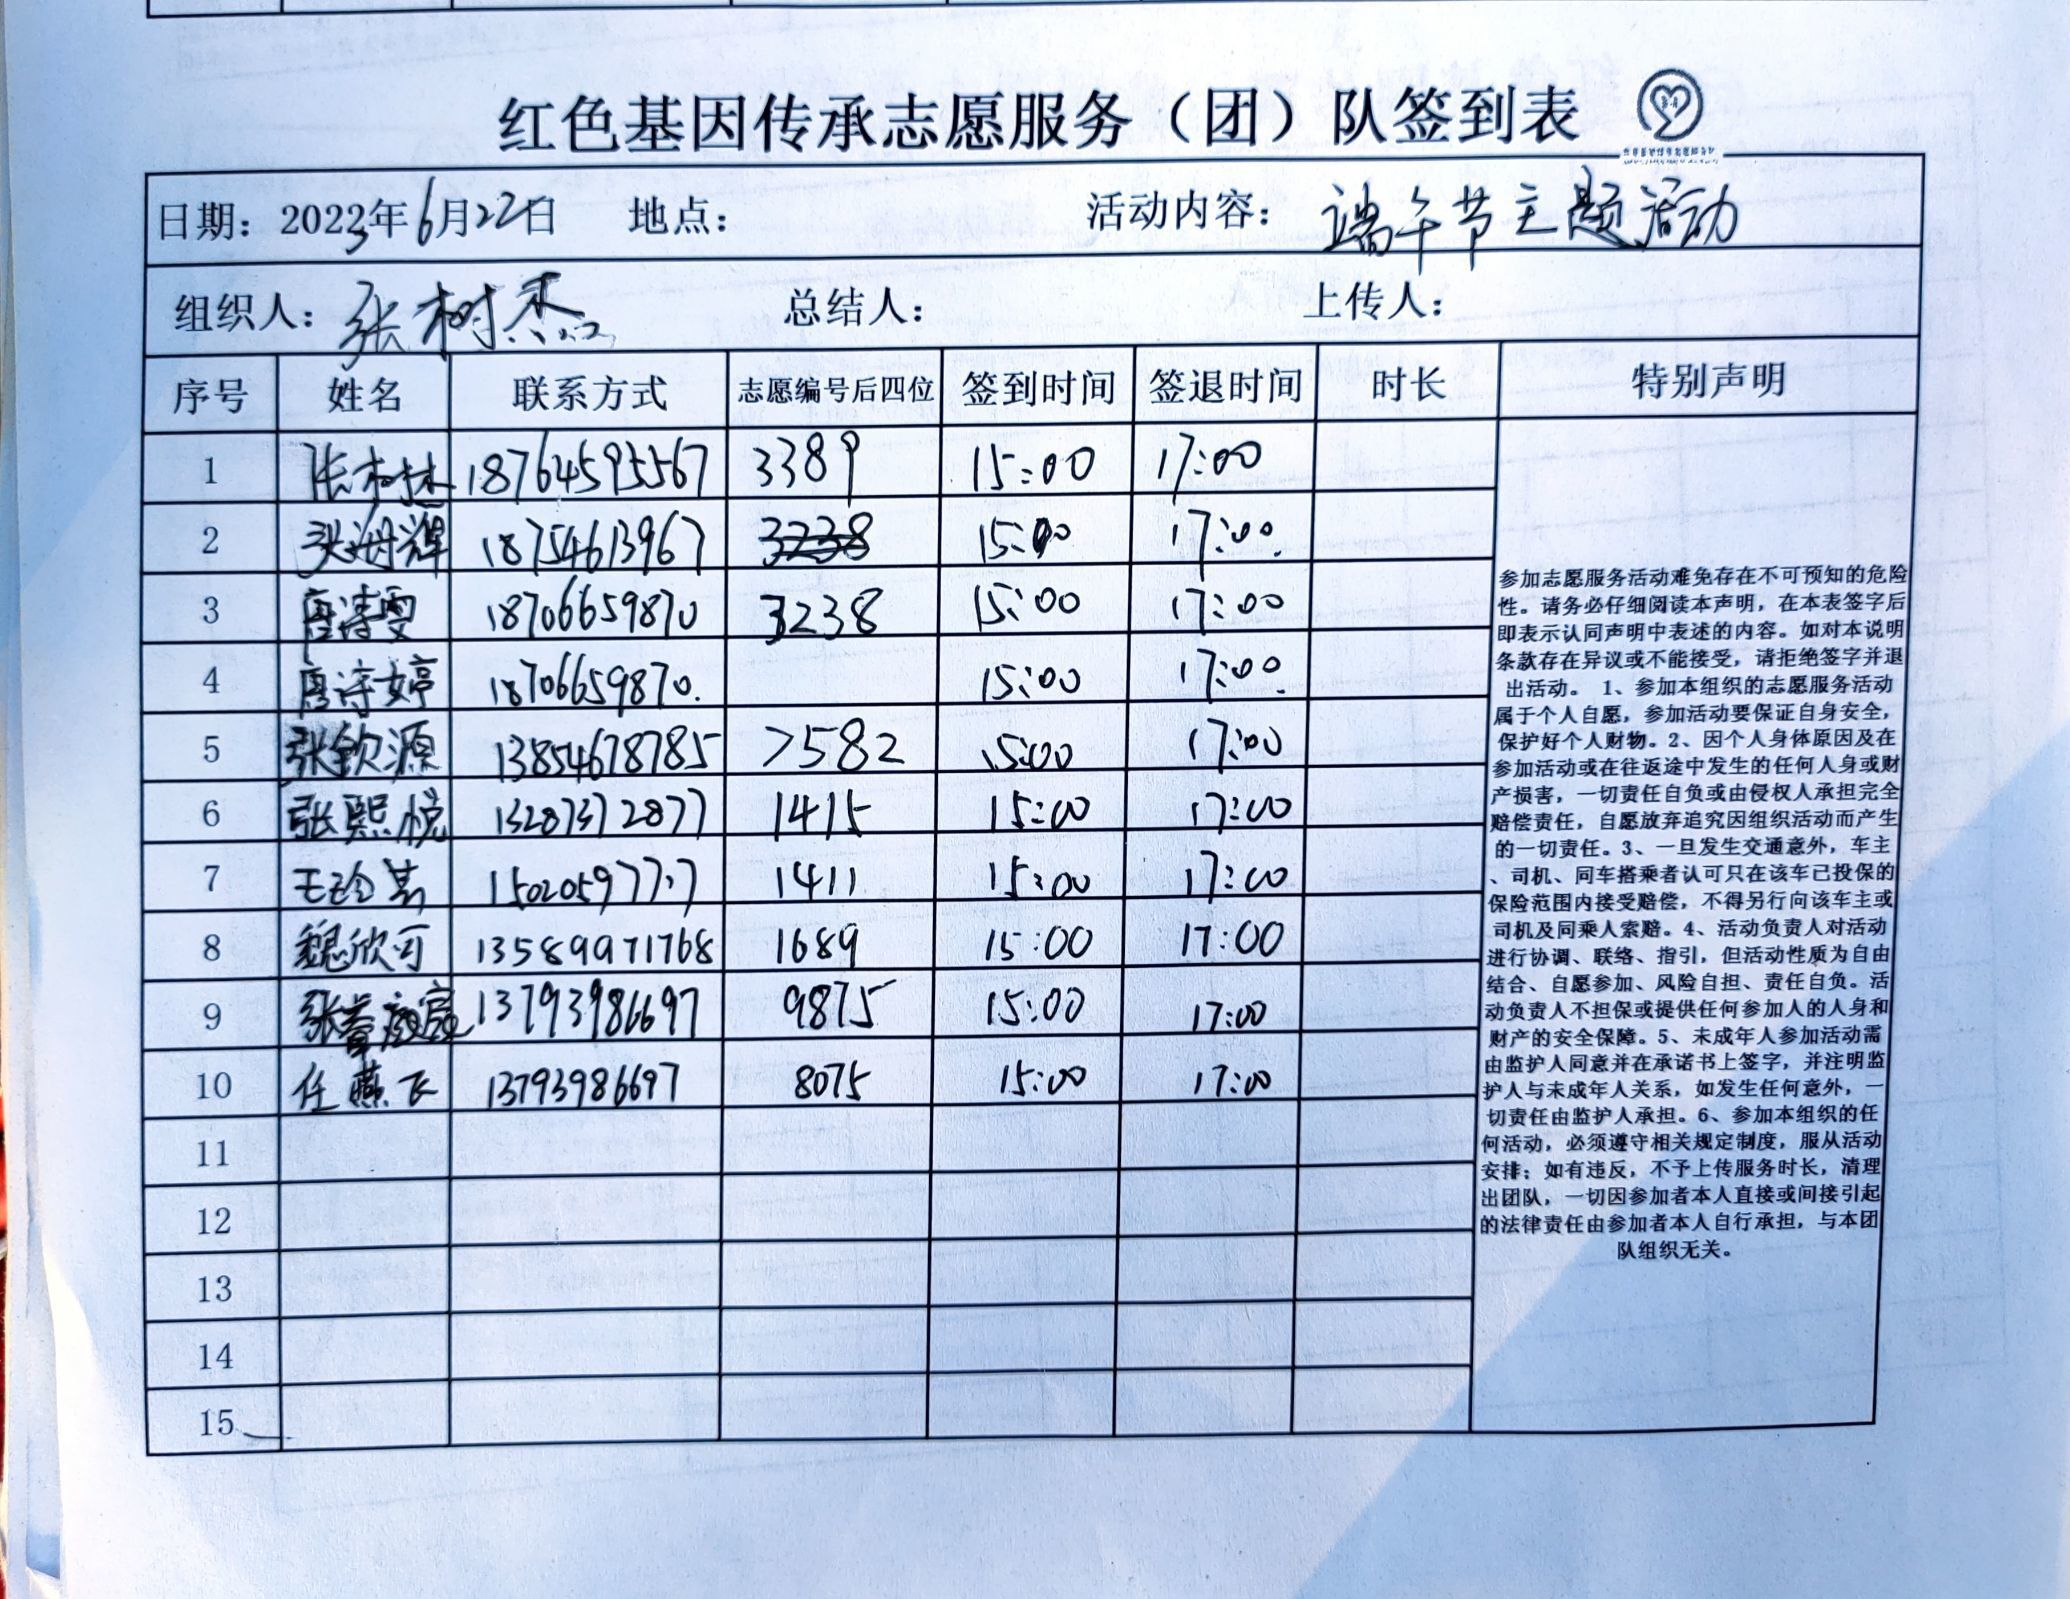 红色基因传承志愿服务（团）队签到表
日期：2023年6月22日 地点： 活动内容：端午节主题活动
组织人：张树杰 总结人： 上传人：
序号 姓名 联系方式 志愿编号后四位 签到时间 签退时间 时长 特别声明
1 张树杰 18764595567 3389 15:00 17:00
2 张海辉 18754613967 3238 15:00 17:00
3 唐诗雯 18706659870 3238 15:00 17:00
4 唐诗婷 18706659870. 15:00 17:00
5 张钦源 13854678785 7582 15:00 17:00
6 张熙悦 13287372877 1415 15:00 17:00
7 1411 15:00 17:00
8 魏欣可 13589971768 1689 15:00 17:00
9 13793986697 9875 15:00 17:00
10 任燕飞 13793986697 8075 15:00 17:00
11
12
13
14
15
参加志愿服务活动难免存在不可预知的危险
性。请务必仔细阅读本声明，在本表签字后
即表示认同声明中表述的内容。如对本说明
条款存在异议或不能接受，请拒绝签字并退
出活动。 1、参加本组织的志愿服务活动
属于个人自愿，参加活动要保证自身安全，
保护好个人财物。2、因个人身体原因及在
参加活动或在往返途中发生的任何人身或财
产损害，一切责任自负或由侵权人承担完全
赔偿责任，自愿放弃追究因组织活动而产生
的一切责任。3、一旦发生交通意外，车主
、司机、同车搭乘者认可只在该车已投保的
保险范围内接受赔偿，不得另行向该车主或
司机及同乘人索赔。4、活动负责人对活动
进行协调、联络、指引，但活动性质为自由
结合、自愿参加、风险自担、责任自负。活
动负责人不担保或提供任何参加人的人身和
财产的安全保障。5、未成年人参加活动需
由监护人同意并在承诺书上签字，并注明监
护人与未成年人关系，如发生任何意外，一
切责任由监护人承担。6、参加本组织的任
何活动，必须遵守相关规定制度，服从活动
安排；如有违反，不予上传服务时长，清理
出团队，一切因参加者本人直接或间接引起
的法律责任由参加者本人自行承担，与本团
队组织无关。